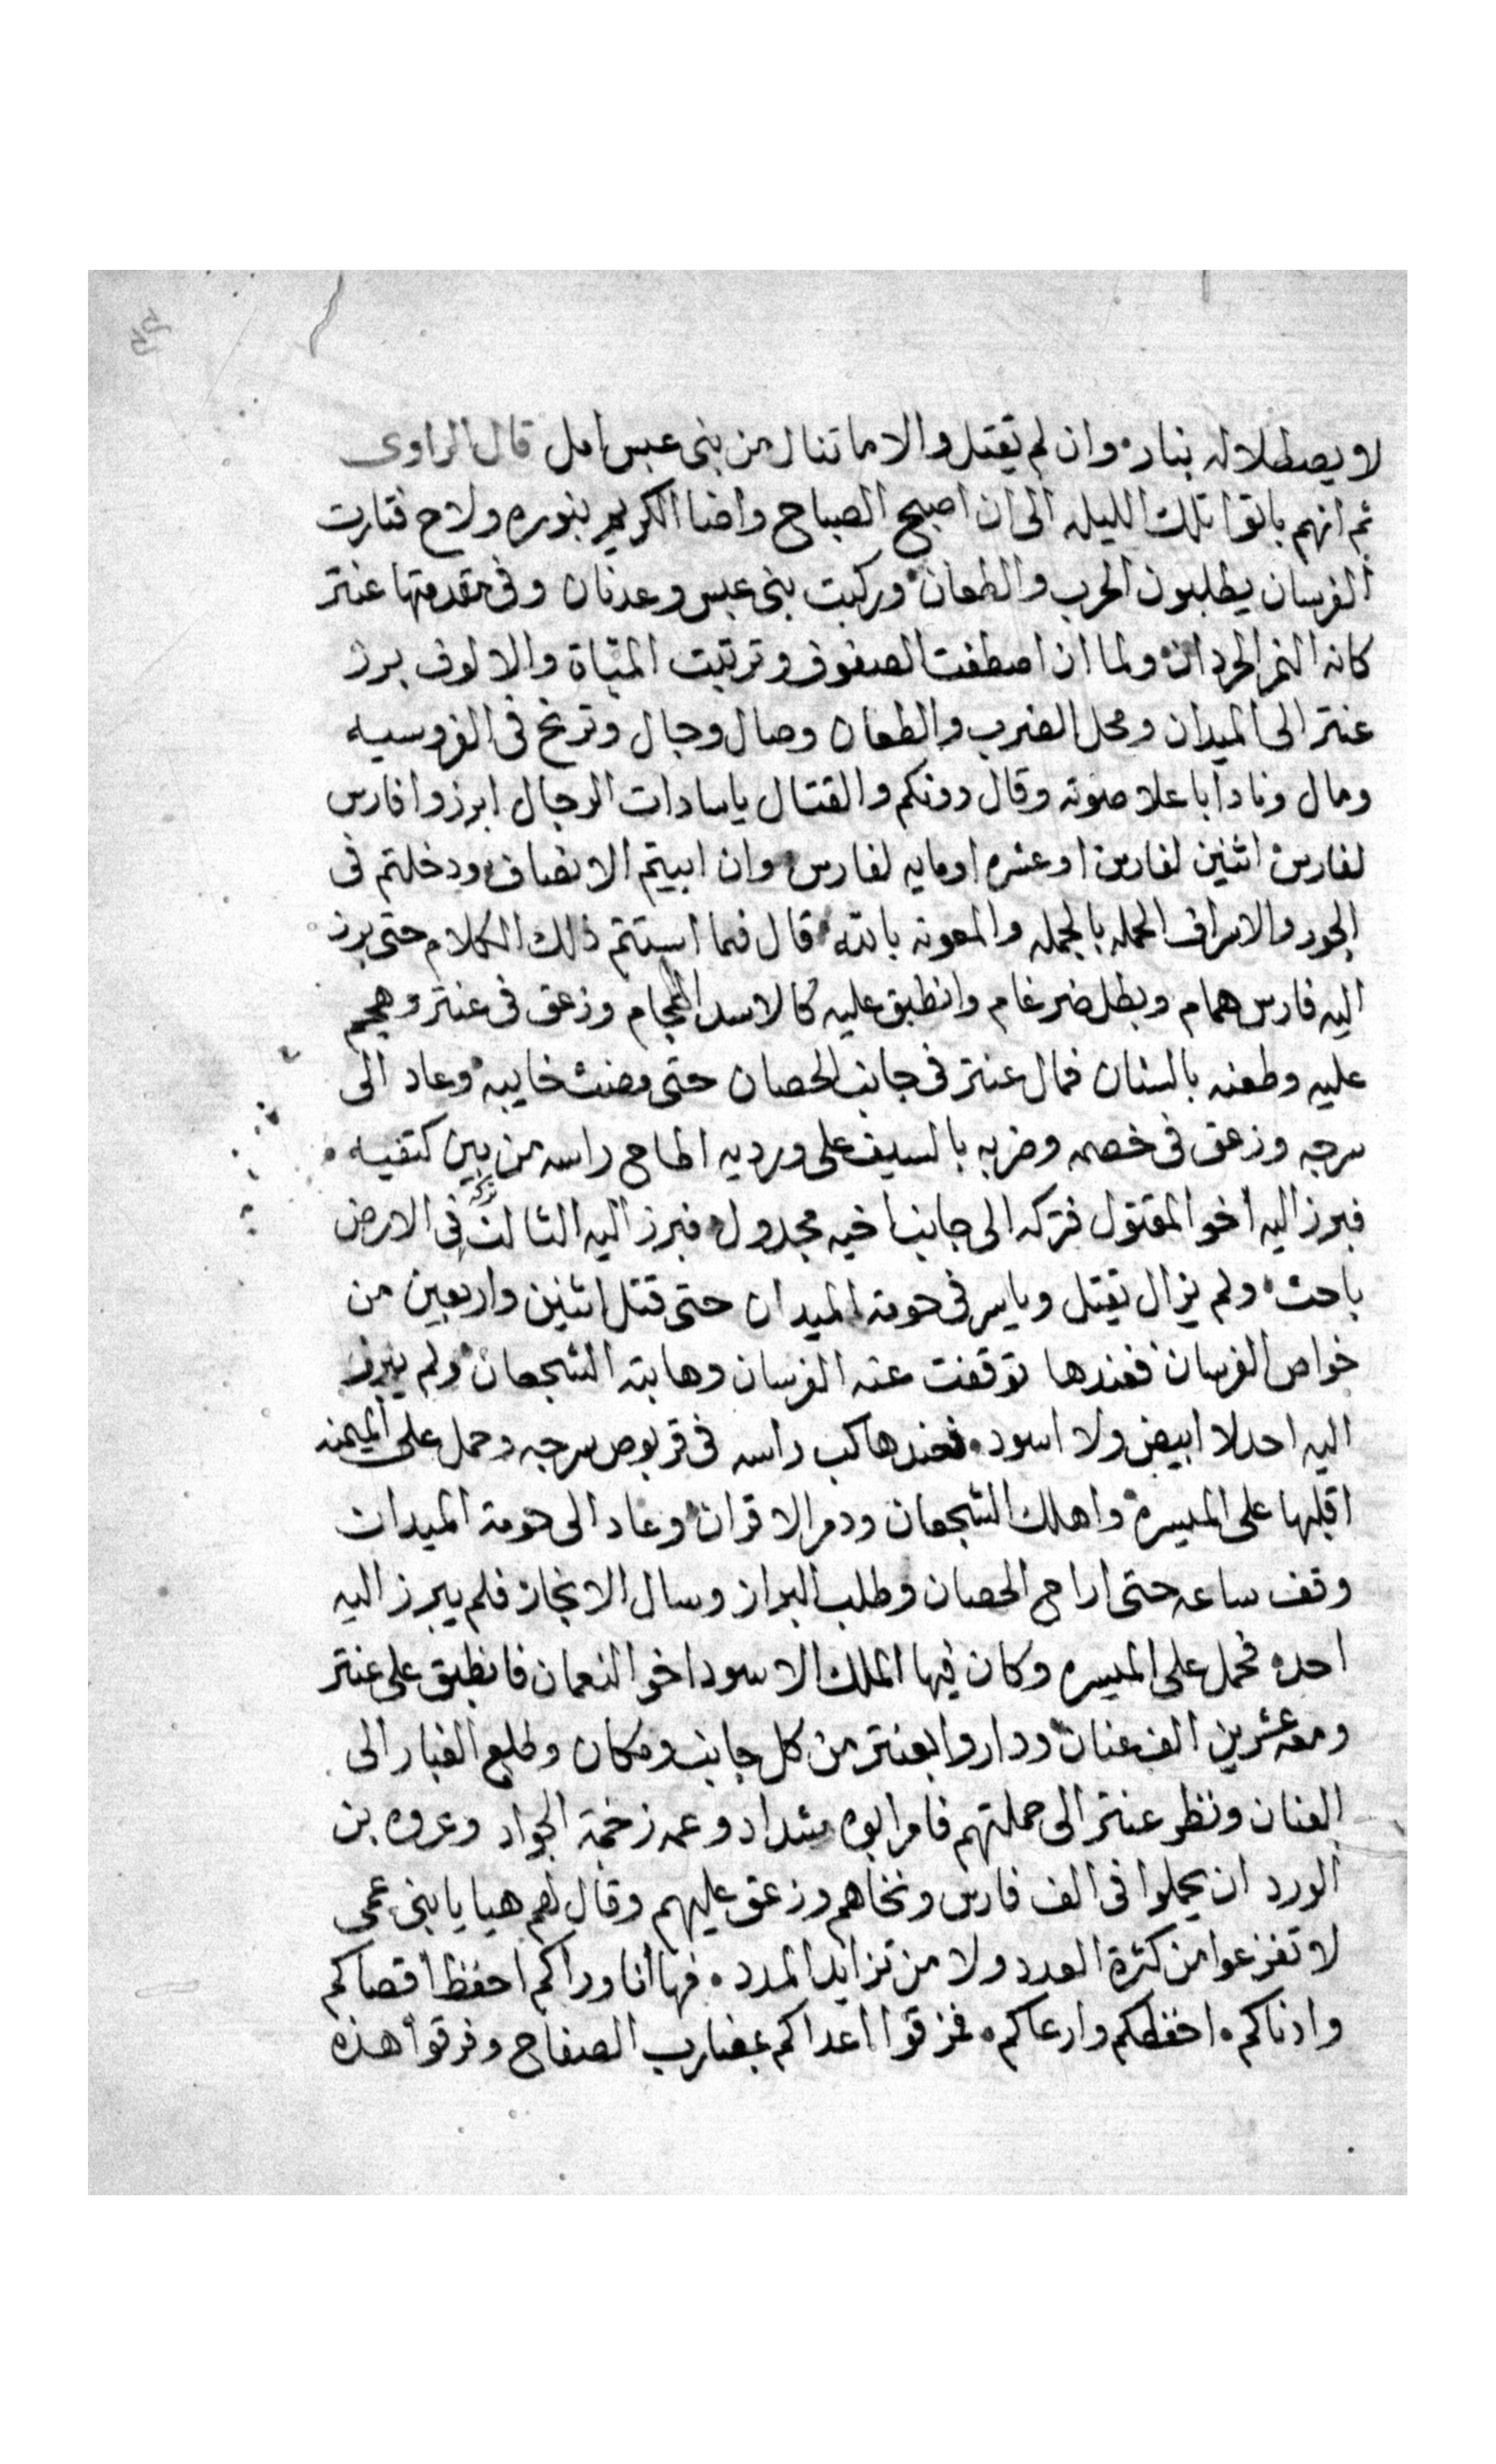 لا يصطلا له بنار وان لم تقتل والا ما تنال من بنى عبس امل قال الراوى
ثم انهم باتوا تلك الليله الى ان اصبح الصباح واضا الكريم بنوره ولاح فتارت
الفرسان يطلبون الحرب والطعان وركبت بنى عبس وعدنان وفى مقدمتها عنتر
كانه النمر الحردان ولما ان اصطفت الصفوف وترتبت الميّاة والالوف برز
عنتر الى الميدان ومحل الضرب والطعان وصال وجال وترنح فى الفروسيه
ومال ونادا باعلا صوته وقال دونكم والقتال ياسادات الرجال ابرزوا فارس
لفارس اثنين لفارس او عشره او مايه لفارس وان ابيتم الانصاف ودخلتم فى
الجور والاسراف الحمله بالجمله والمعونه بالله قال فما استتم ذلك الكلام حتى برز
اليه فارس همام وبطل ضرغام وانطبق عليه كالاسد الهجام وزعق فى عنتر وهجم
عليه وطعنه بالسنان فمال عنتر فى جانب الحصان حتى مضت خايبه وعاد الى
سرجه وزعق فى خصمه وضربه بالسيف على ورديه اطاح راسه من بين كتفيه
فبرز اليه اخو المقتول فتركه الى جانب اخيه مجدول فبرز اليه الثالث تركه فى الارض
باحث ولم يزال يقتل وياسر فى حومة الميدان حتى قتل اثنين واربعين من
خواص الفرسان فعندها توقفت عنه الفرسان وهابته الشجعان ولم يبرز
اليه احد لا ابيض ولا اسود فعندها كب راسه فى قربوص سرجه وحمل على الميمنه
اقلبها على الميسره واهلك الشجعان ودمر الاقران وعاد الى حومة الميدان
وقف ساعه حتى اراح الحصان وطلب البراز وسال الانجاز فلم يبرز اليه
احد فحمل على الميسره وكان فيها الملك الاسود اخو النعمان فانطبق على عنتر
ومعه عشرين الف عنان وداروا بعنتر من كل جانب ومكان وطلع الغبار الى
العنان ونظر عنتر الى حملتهم فامر ابوه شداد وعمه زخمة الجواد وعروه بن
الورد ان يحملوا فى الف فارس ونخاهم وزعق عليهم وقال لهم هيا يا بنى عمى
لا تفزعوا من كثرة العدد ولا من تزايد المدد فها أنا وراكم احفظ اقصاكم
وادناكم احفظكم وارعاكم فمزقوا اعداكم بضارب الصفاح وفرقوا هذه